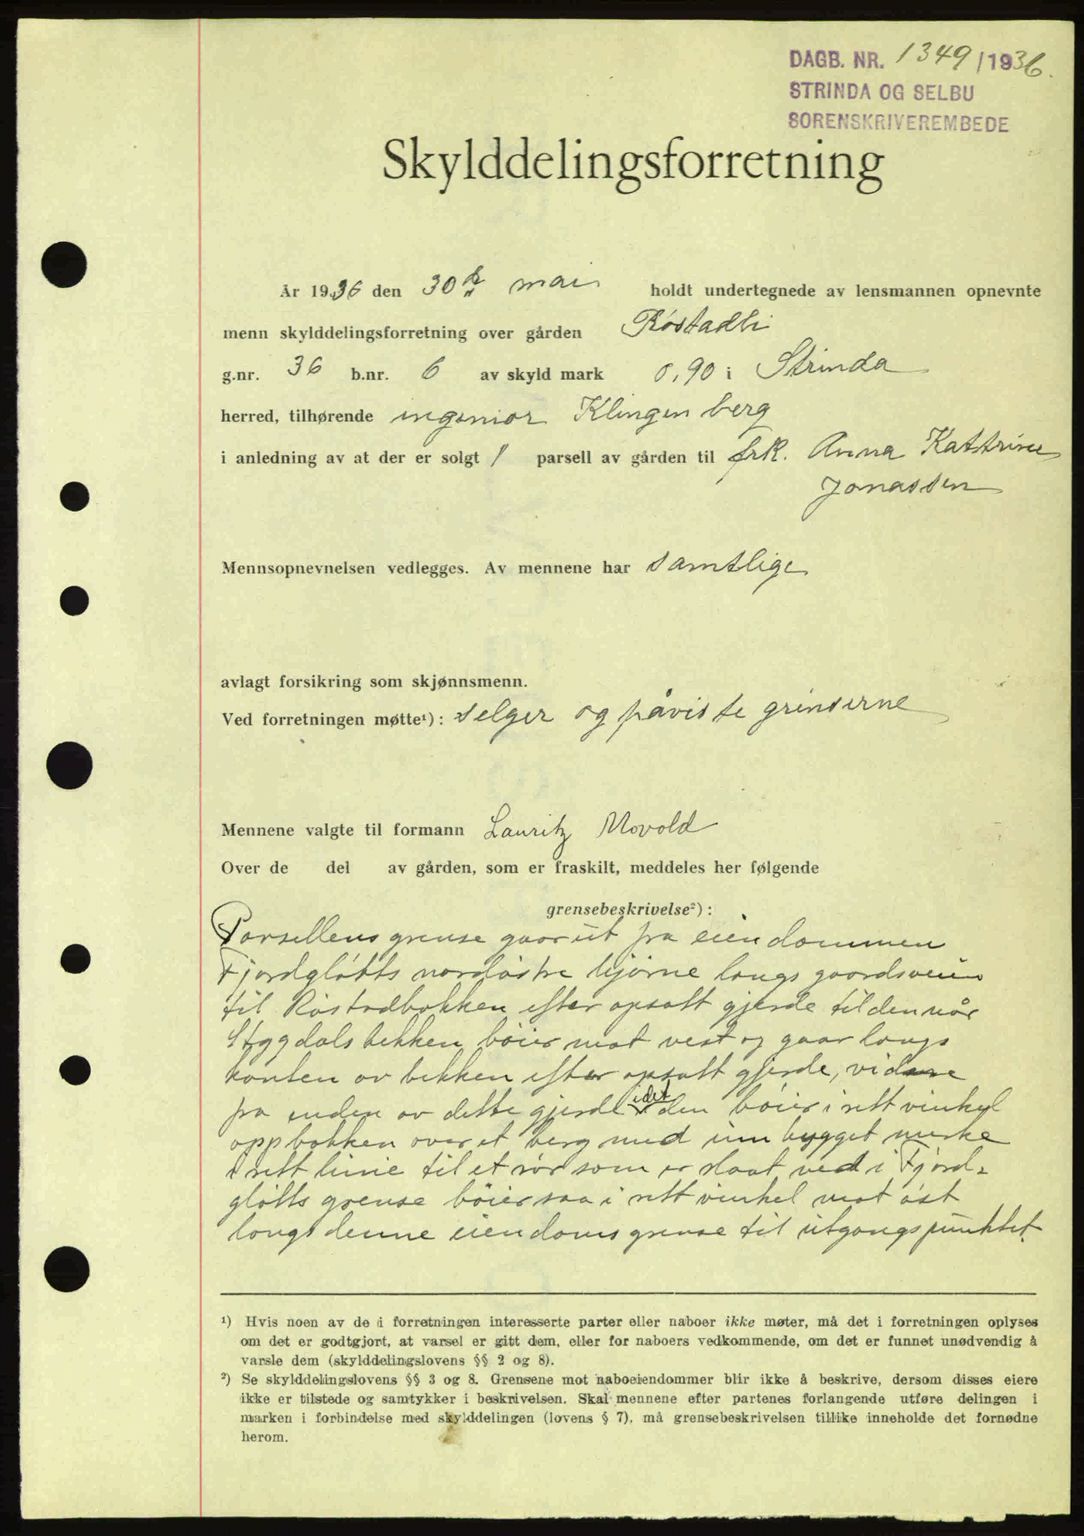 DAGB. NR. 1349/1936.
STRINDA OG SELBU
SORENSKRIVEREMBEDE
Skylddelingsforretning
År 1936 den 30te mai holdt undertegnede av lensmannen opnevnte
menn skylddelingsforretning over gården Røstadli
g.nr. 36 b.nr. 6 av skyld mark 0,90 i Strinda
herred, tilhørende ingeniør Klingenberg
i anledning av at der er solgt 1 parsell av gården til frk. Anna Kattrine
Jonassen
Mennsopnevnelsen vedlegges. Av mennene har samtlige
avlagt forsikring som skjønnsmenn.
Ved forretningen møtte¹): selger og påviste grenserne
Mennene valgte til formann Lauritz Movold
Over de del av gården, som er fraskilt, meddeles her følgende
grensebeskrivelse²):
Parsellens grense gaar ut fra eiendommen
Fjordgløtts nordøstre hjørne langs gaardsveien
til Røstadbakken efter opsatt gjerde til den når
Stygdalsbekken, bøier mot vest og gaar langs
kanten av bekken efter opsatt gjerde, videre
fra enden av dette gjerde idet den bøier i rett vinkel
opp bakken over et berg med innhugget merke
i rett linie til et rør som er slaat ned i Fjord-
gløtts grense bøier saa i rett vinkel mot øst
langs denne eiendoms grense til utgangspunktet.
¹) Hvis noen av de i forretningen interesserte parter eller naboer ikke møter, må det i forretningen oplyses
om det er godtgjort, at varsel er gitt dem, eller for naboers vedkommende, om det er funnet unødvendig å
varsle dem (skylddelingslovens §§ 2 og 8).
²) Se skylddelingslovens §§ 3 og 8. Grensene mot naboeiendommer blir ikke å beskrive, dersom disses eiere
ikke er tilstede og samtykker i beskrivelsen. Skal mennene efter partenes forlangende utføre delingen i
marken i forbindelse med skylddelingen (lovens § 7), må grensebeskrivelsen tillike inneholde det fornødne
herom.